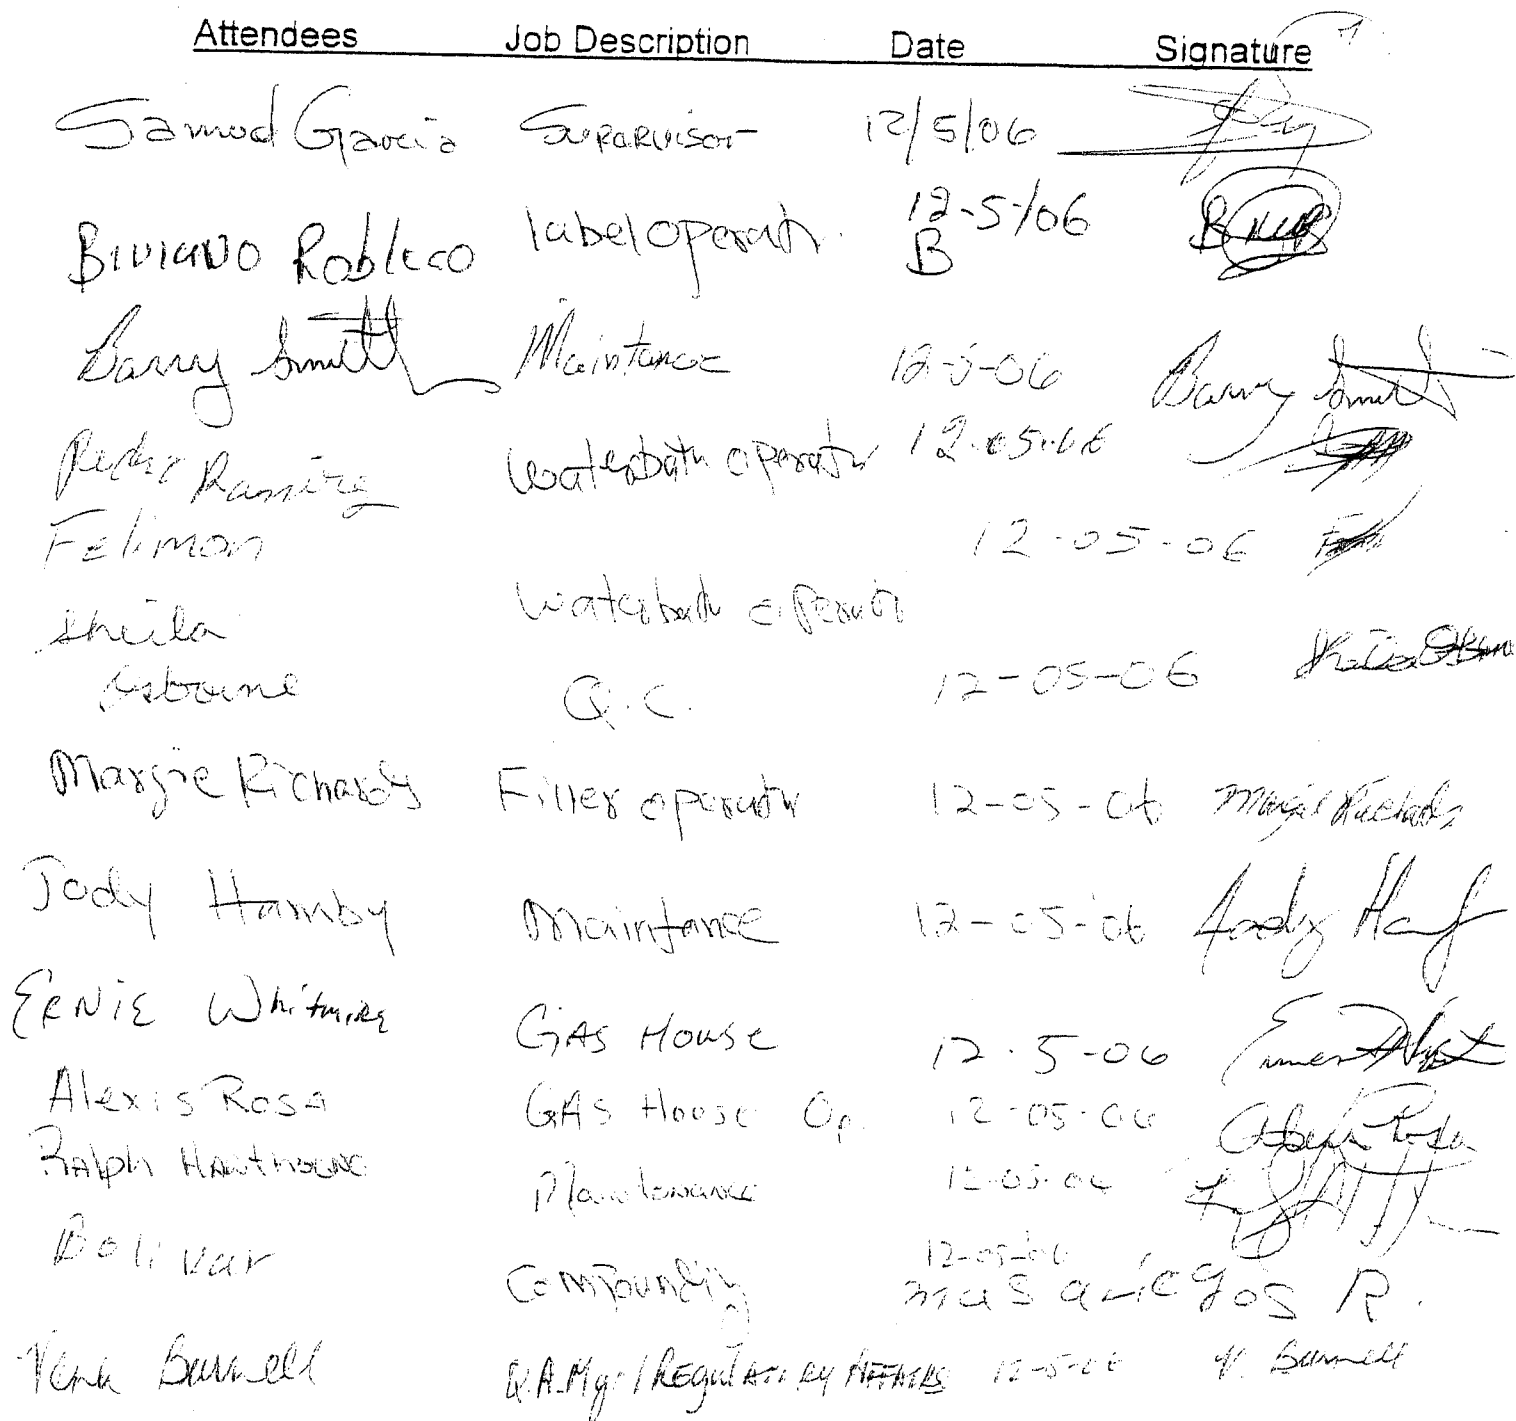 Attendees Job Description Date Signature
Samuel Garcia Supervisor 12/5/06
Biviano Robledo label operator 12-5-/06
B
Barry Smith Maintance 12-5-06 Barry Smith
Pedro Ramirez Waterbath operator 12-05-06
Felimon Waterbath operator 12-05-06
Sheila
Osborne Q.C. 12-05-06 Sheila Osborne
Margie Richards Filler operator 12-05-06 Margie Richards
Jody Hamby Maintance 12-05-06 Jody
Ernie Whitmire Gas House 12-5-06
Alexis Rosa Gas House Op. 12-05-06 Alexis Rosa
Ralph Hawthorne Maintenance 12-05-06
Bolivar Compounding 12-05-06 masariegos R.
Burnell Q.A. Mgr / Regulatory Affairs 12-5-06 V. Burnell